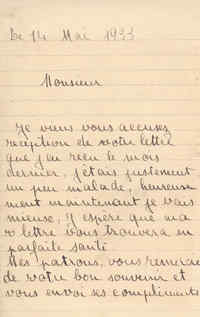 Le 14 Mai 1933
Monsieur
Je viens vous accusez
réception de votre lettre
que j'ai reçu le mois
dernier, j'étais justement
un peu malade, heureuse
ment maintenant je vais
mieux, j'espère que ma
lettre vous trouvera en
parfaite santé
Mes patrons, vous remercie
de votre bon souvenir et
vous envoi ses compliments